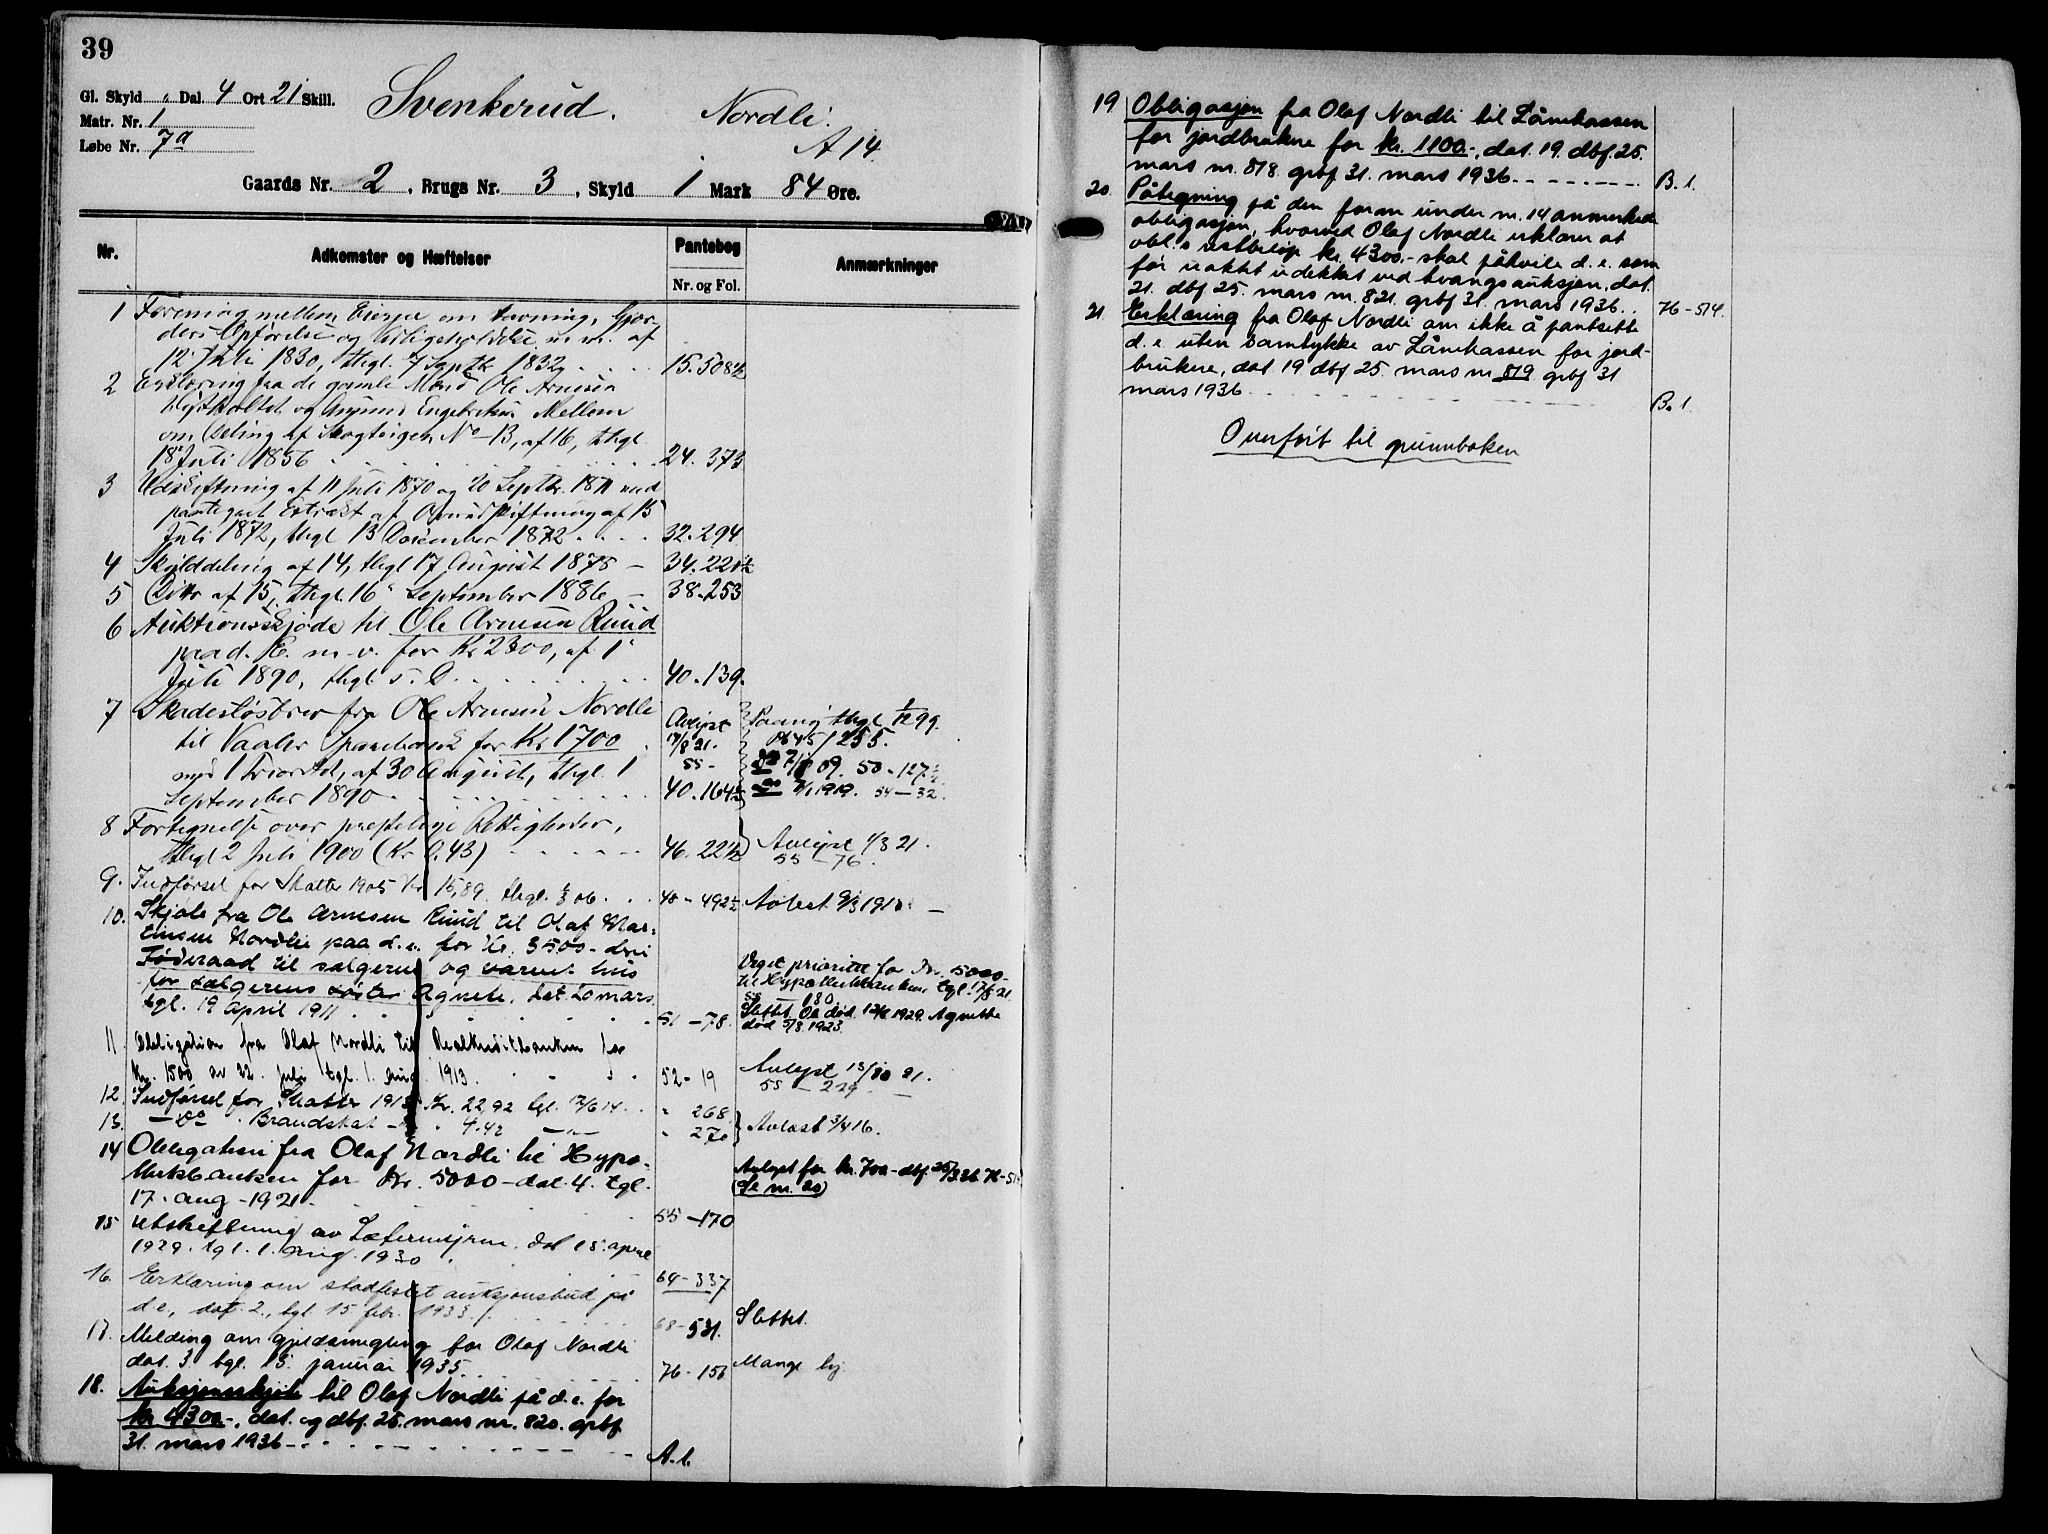 39
Gl. Skyld " Dal. 4 Ort 21 Skill.
Matr. Nr. 1
Løbe Nr. 7a
Svenkerud. Nordli.
A 14.
Gaards Nr. 2, Brugs Nr. 3, Skyld 1 Mark 84 Øre.
Nr. Adkomster og Hæftelser Pantebog Anmærkninger
Nr. og Fol.
1 Forening mellem Eierne om Havning, Gjær-
ders Opførelse og Vedligeholdelse m. m. af
12 Juli 1830, thgl. 7 Septbr 1832 15.508½
2 Erklæring fra Ole Arnesen
og Engebretsen Mellem
om Deling af Skogteigen No 13, af 16, thgl.
18 Juli 1856 24.373
3 Udskiftning af 11 Juli 1870 og 20 Septbr. 1871 med
paategnet Extrakt af Overudskiftning af 15
Juli 1872, thgl 13 December 1872 32.294
4 Skylddeling af 14, thgl 17 August 1875 34.221½
5 Ditto af 15, thgl. 16 September 1886 38.253
6 Auktionsskjøde til Ole Arnesen Ruud
paa d. E. m. v. for Kr 2300, af 1
Juli 1890, thgl. s. D. 40.139.
7 Skadesløsbrev fra Ole Arnesen Nordli Avlyst Paateg thgl 1/12 99.
til Vaaler Sparebank for Kr 1700 17/8 21. Pb 45/255.
med 1 Prioritet, af 30 August, thgl. 1 55- do 7/8 09. 50-127½
September 1890 40.164½ do 2/1 1919. 54-32.
8 Fortegnelse over præstelige Rettigheder,
thgl 2 Juli 1900 (Kr 0,43) 46.22½ Avlyst 1/3 21.
55-76.
9. Indførsel for Skatter 1905 Kr 15,89. thgl. 06. 48-492½ Avlest 1910
10. Skjøte fra Ole Arnesen Ruud til Olaf Mar-
tinsen Nordlie paa d.e. for kr. 3500-
Føderaad til sælgeren og varmt hus
for sælgerens søster Agnete. Dat 20 mars
tgl. 19 April 1911 51-78.
Veget prioritet for Kr. 5000-
til Hypothekbanken tgl. 17/8 21.
55-180.
Slettet. Ole død 1929. Agnethe
død 1923.
11. Obligation fra Olaf Nordli til Realkreditbanken for
kr. 1500 av 22. juli tgl. 1. aug. 1913. 52-19 Avlyst 13/10 21.
55-229
12. Indførsel for Skatter 1913 Kr. 22,92 tgl. 12/6 14. " 268
13. - do - Brandskat " 4.42 " 270 Avlest 3/4 16.
14 Obligation fra Olaf Nordli til Hypo-
thekbanken for Kr. 5000- dat. 4. tgl.
17. aug - 1921. 55-170
Avlyst for kr. 700- dbf. 25/3 36 76-514
(Se nr. 20)
15 Utskiftning av Sætermyrene. Dat 15. april
1929. tgl. 1. aug. 1930 64-337
16. Erklæring om stadfestet auksjonsbud på
d.e., dat. 2., tgl. 15 febr. 1933. 68-531. Slettet.
17. Melding om gjeldsmegling for Olaf Nordli
dat. 3. tgl. 5. januar 1935. 76-156
18. Auksjonsskjøte til Olaf Nordli på d.e. for
kr. 4300.-, dat. og dbf. 25. mars nr. 820. grbf
31. mars 1936 A. 1.
19 Obligasjon fra Olaf Nordli til Lånekassen
for jordbrukere for kr. 1100.-, dat. 19. dbf. 25.
mars nr. 818. grbf 31. mars 1936 B. 1.
20. Påtegning på den foran under nr. 14 anmerkede
obligasjon, hvorved Olaf Nordli erklærer at
obl.s restbeløp kr. 4300.- skal påhvile d.e. som
før uaktet udekket ved tvangsauksjon, dat.
21. dbf 25. mars nr. 821. grbf 31. mars 1936. 76-514.
21. Erklæring fra Olaf Nordli om ikke å pantsette
d.e. uten samtykke av Lånekassen for jord-
brukere, dat 19 dbf 25. mars nr 819 grbf 31
mars 1936 B. 1.
Overført til grunnboken